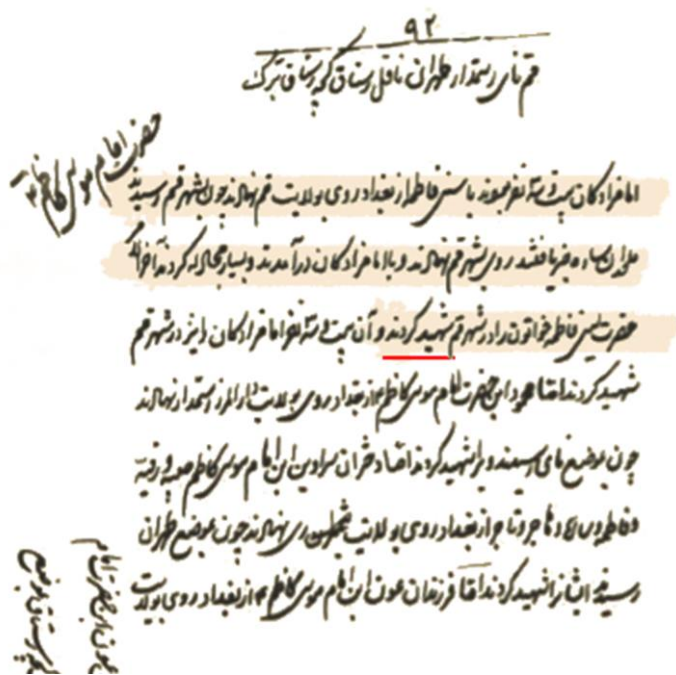 ۹۲
قم نای رستمدار طهران ناقل رستاق کجه رستاق ترک
حضرت امام موسی کاظم
امامزادگان بیست و سه نفر بودند با ستی فاطمه از بغداد روی بولایت قم نهادند چون بشهر قم رسیدند
ملحدان ساوه خبر یافتند روی بشهر قم نهادند و با امامزادگان درآمدند و بسیار مجادله کردند آخر الامر
حضرت ستی فاطمه خواتون را در شهر قم شهید کردند و آن بیست و سه نفر امامزادگان را نیز در شهر قم
شهید کردند اما هود ابن حضرت امام موسی کاظم از بغداد روی بولایت دارالمرز رستمدار نهادند
چون بموضع نای رسیدند ویرا شهید کردند اما دختران ابن امام موسی کاظم صفیه و رقیه
و فاطمه و هاجر و تاجر از بغداد روی بولایت ری نهادند چون بموضع طهران
رسیدند ایشانرا شهید کردند اما فرزندان عون ابن امام موسی کاظم از بغداد روی بولایت
عون ابن حضرت امام
رستاق بموضع